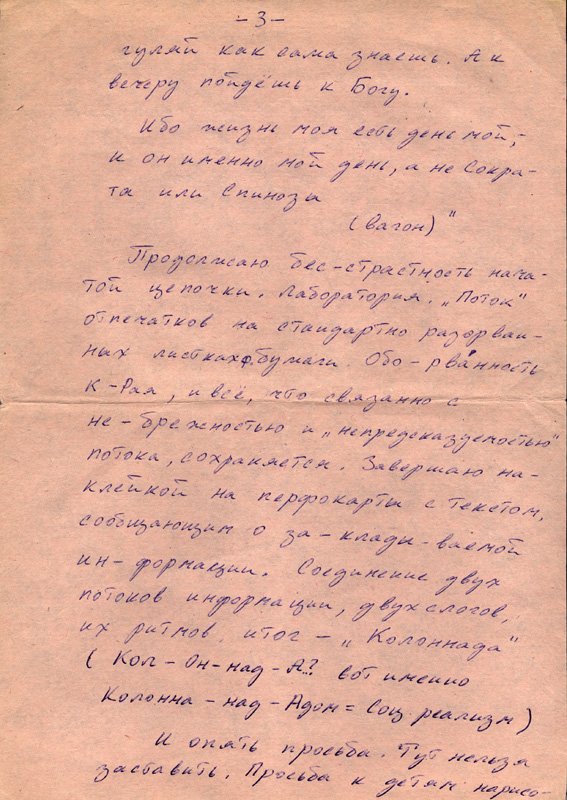 -3-
гуляй как сама знаешь. А к
вечеру пойдёшь к Богу.
Ибо жизнь моя есть день мой,-
и он именно мой день, а не Сокра-
та или Спинозы
(вагон)"
Продолжаю бес-страстность нача-
той цепочки. Лаборатория. „Поток"
отпечатков на стандартно разорван-
ных листках бумаги. Обо-рванность
К-Рая, и всё, что связанно с
не-брежностью и „непредсказуемостью"
потока, сохраняется. Завершаю на-
клейкой на перфокарты с текстом,
сообщающим о за-клады-ваемой
ин-формации. Соединение двух
потоков информации, двух слогов,
их ритмов, итог - „Колоннада"
(Кол-Он-над-А..? вот именно
Колонна-над-Адом = Соц реализм)
И опять просьба. Тут нельзя
заставить. Просьба к детям нарисо-